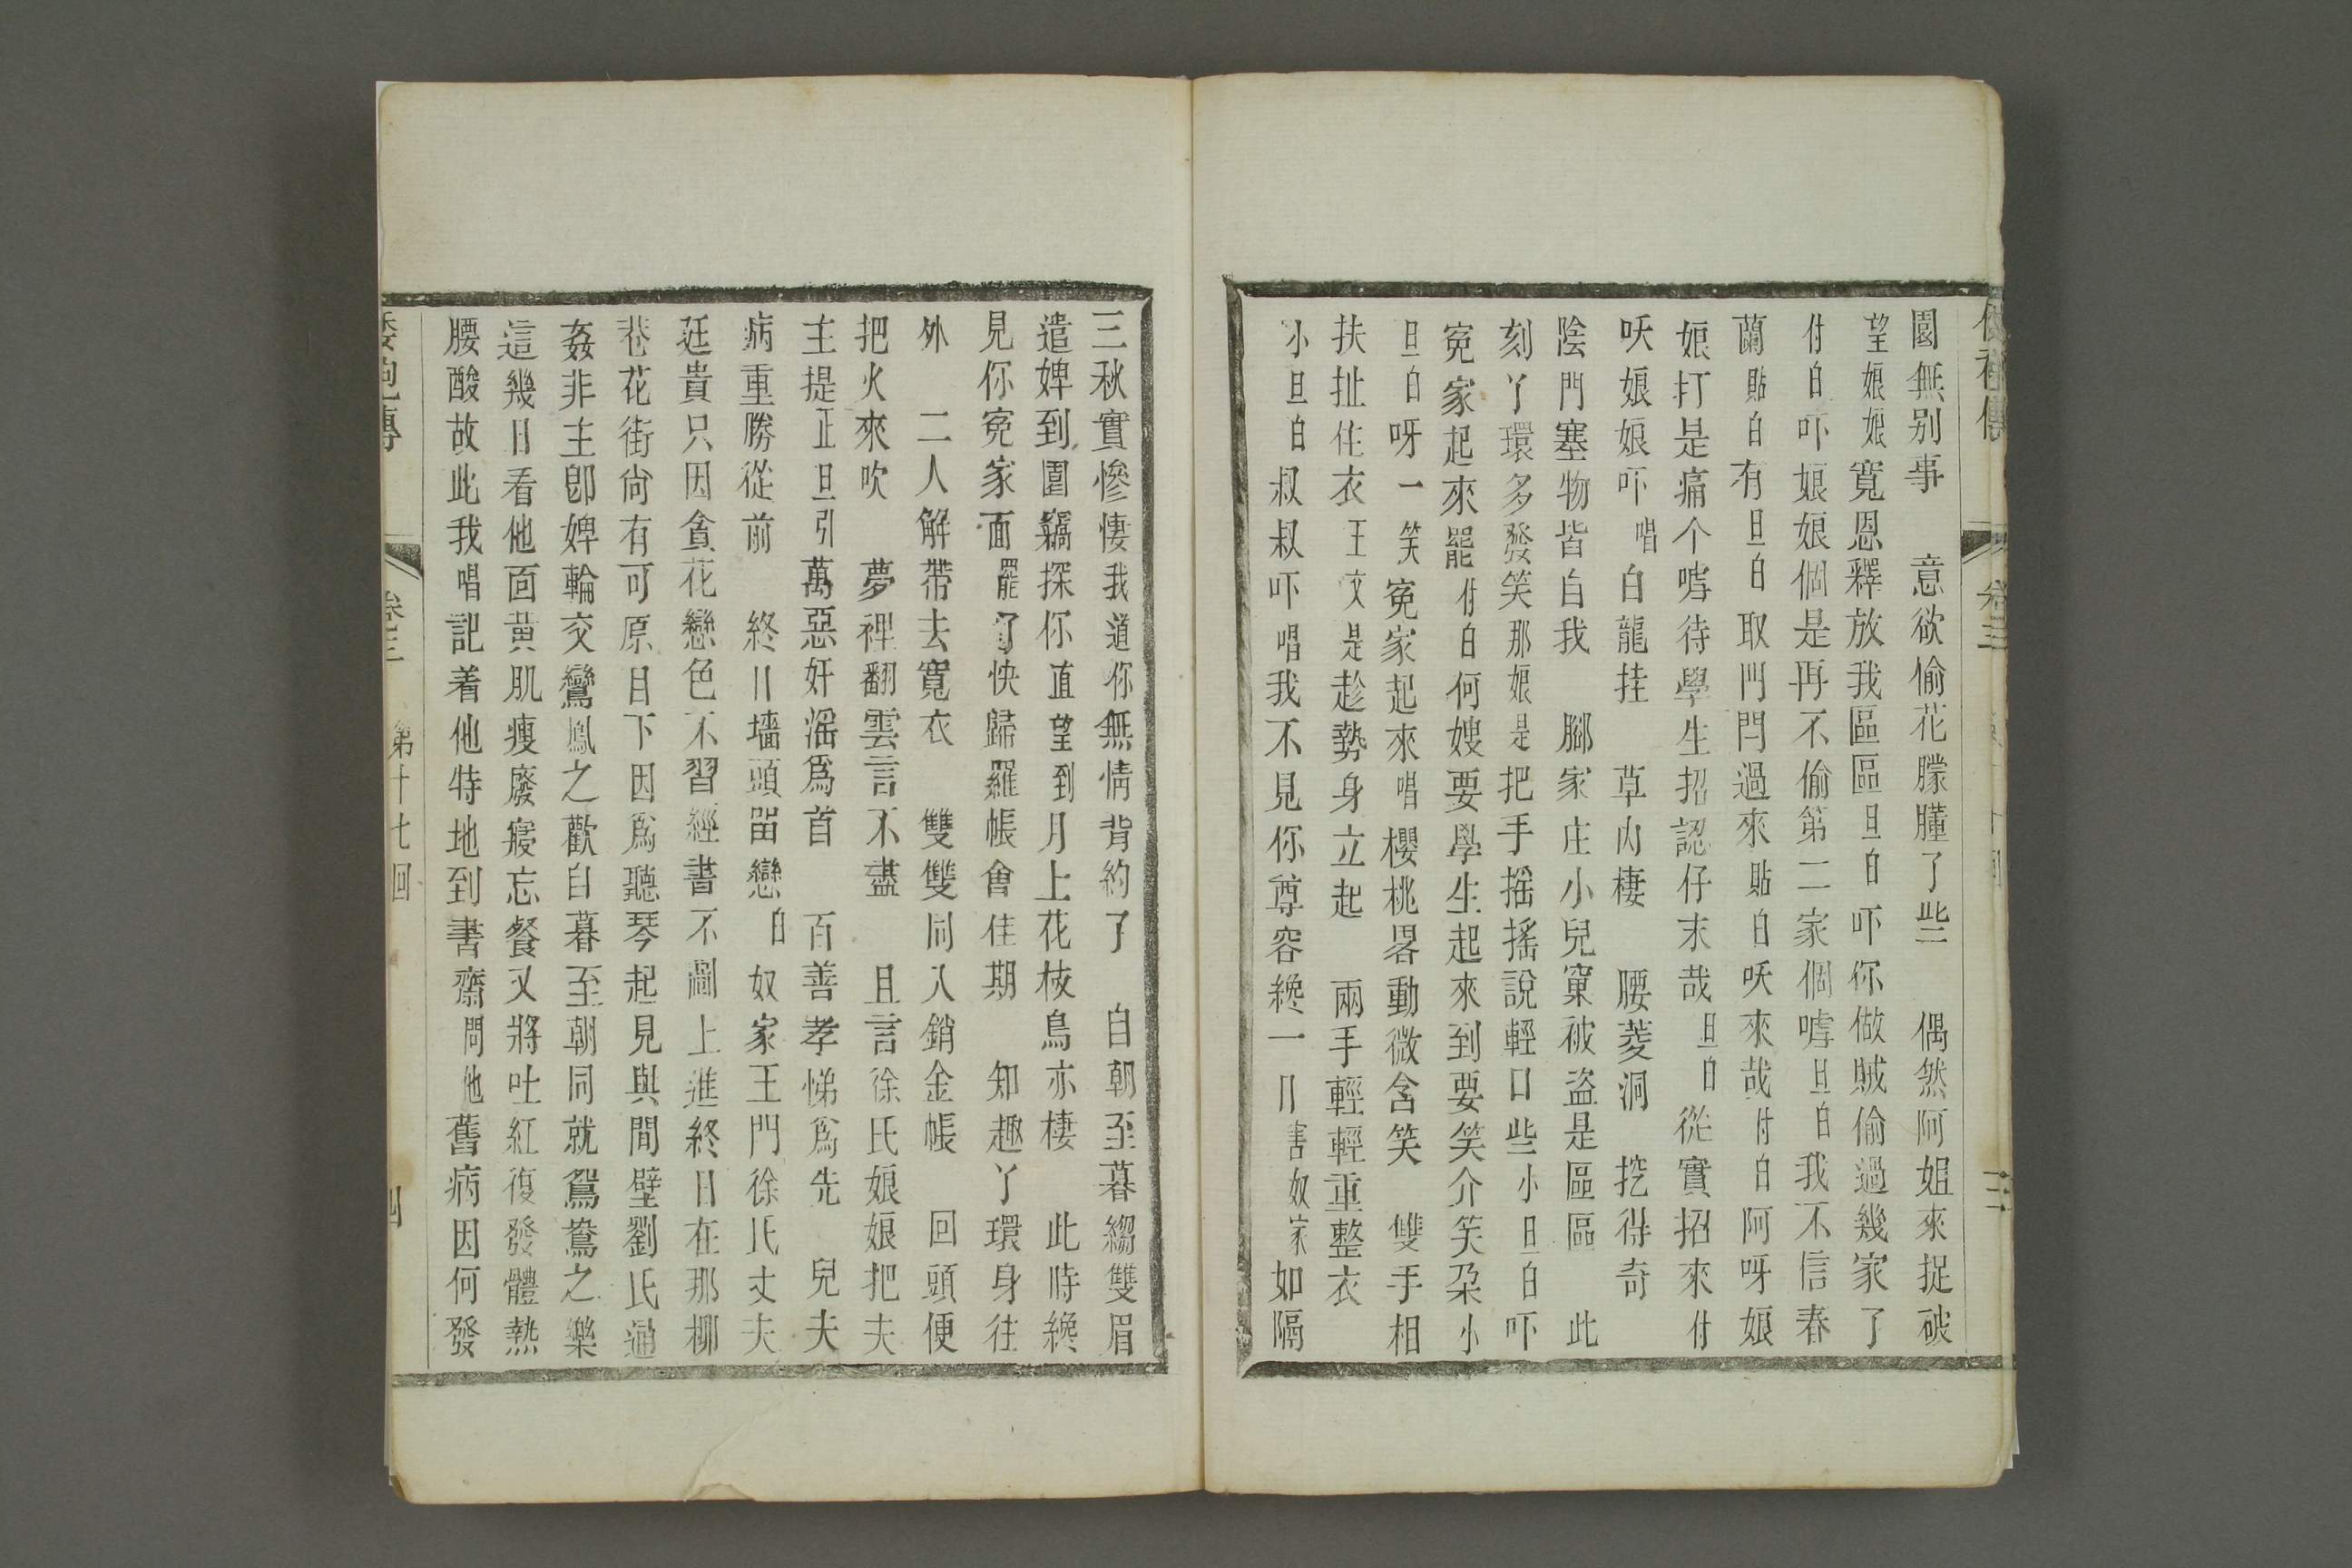 園無别事　意欲偷花朦朣了些　偶然阿姐來捉破
望娘娘寬恩釋放我區區旦白吓你做賊偷過幾家了
付白吓娘娘個是再不偷第二家個嘑旦白我不信春
蘭貼白有旦白取門閂過來貼白呋來哉付白阿呀娘
娘打是痛个嘑待學生招認仔末哉旦白從實招來付
呋娘娘吓唱白龍挂　草內棲　腰菱洞　挖得奇
陰門塞物皆自我　腳家庄小兒窠被盗是區區　此
刻丫環多發笑那娘是把手摇摇說輕口些小旦白吓
寃家起來罷付白何嫂要學生起來到要笑介笑朶小
旦白呀一笑寃家起來唱櫻桃畧動微含笑　雙手相
扶扯住衣王文是趁勢身立起　兩手輕輕重整衣
小旦白叔叔吓唱我不見你尊容纔一日害奴家如隔
三秋實慘悽我道你無情背約了　自朝至暮縐雙眉
遣婢到園竊探你直望到月上花枝鳥亦棲　此時纔
見你寃家面罷了快歸羅帳會佳期　知趣丫環身往
外　二人解帶去寬衣　雙雙同入銷金帳　回頭便
把火來吹　夢裡翻雲言不盡　且言徐氏娘娘把夫
主提正旦引萬惡奸滛爲首　百善孝悌爲先　兒夫
病重勝從前　終日墻頭留戀白　奴家王門徐氏丈夫
廷貴只因貪花戀色不習經書不圖上進終日在那柳
巷花街尚有可原目下因爲聽琴起見與間壁劉氏通
姦非主卽婢輪交鸞鳳之歡自暮至朝同就鴛鴦之樂
這幾日看他面黄肌瘦廢寢忘餐又將吐紅復發體熱
腰酸故此我唱記着他特地到書齋問他舊病因何發
傳　卷三　第十七回　四